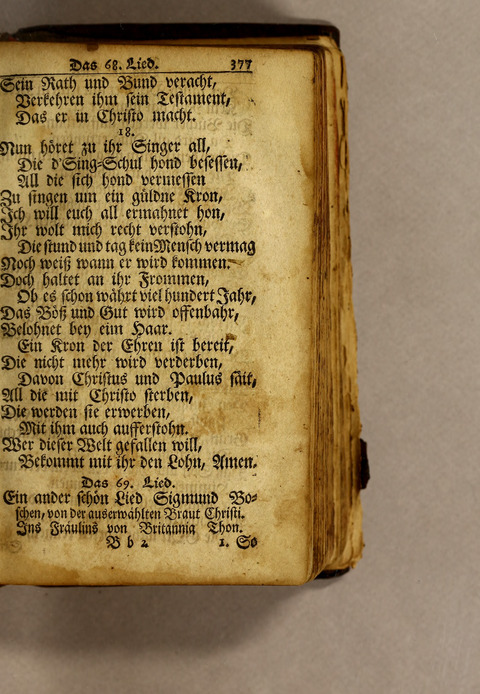 Das 68. Lied. 377
Sein Rath und Bund veracht,
Verkehren ihm sein Testament,
Das er in Christo macht.
18.
Nun höret zu ihr Singer all,
Die d'Sing-Schul hond besessen,
All die sich hond vermessen
Zu singen um ein güldne Kron,
Ich will euch all ermahnet hon,
Ihr wolt mich recht verstohn,
Die stund und tag kein Mensch vermag
Noch weiß wann er wird kommen.
Doch haltet an ihr Frommen,
Ob es schon währt viel hundert Jahr,
Das Böß und Gut wird offenbahr,
Belohnet bey eim Haar.
Ein Kron der Ehren ist bereit,
Die nicht mehr wird verderben,
Davon Christus und Paulus säit,
All die mit Christo sterben,
Die werden sie erwerben,
Mit ihm auch aufferstohn.
Wer dieser Welt gefallen will,
Bekommt mit ihr den Lohn, Amen.
Das 69. Lied.
Ein ander schön Lied Sigmund Bo-
schen, von der auserwählten Braut Christi.
Ins Fräulins von Britannia Thon.
B b 2 1. So